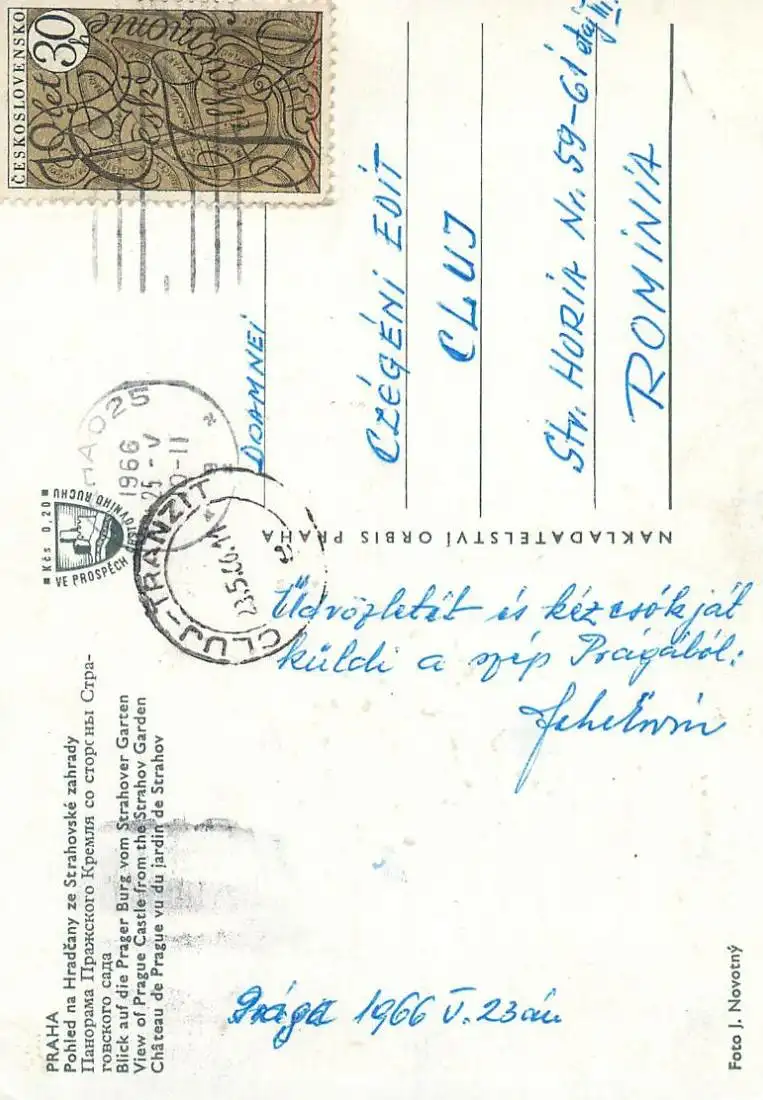 PRAHA
Pohled na Hradčany ze Strahovské zahrady
Панорама Пражского Кремля со стороны Стра-
говского сада
Blick auf die Prager Burg vom Strahover Garten
View of Prague Castle from the Strahov Garden
Château de Prague vu du jardin de Strahov
Prága 1966 V. 23án
Üdvözletét és kézcsókját
küldi a szép Prágából:
Foto J. Novotný
NAKLADATELSTVÍ ORBIS PRAHA
Kčs 0,20
VE PROSPĚCH CESTOVNÍHO RUCHU
025
1966
25 -V
-11
CLUJ-TRANZIT
ČESKOSLOVENSKO
30 h
70 let
České
filharmonie
DOAMNEI
CZÉGÉNI EDIT
CLUJ
Str. HORIA Nr. 59-61 etaj III.
ROMINIA